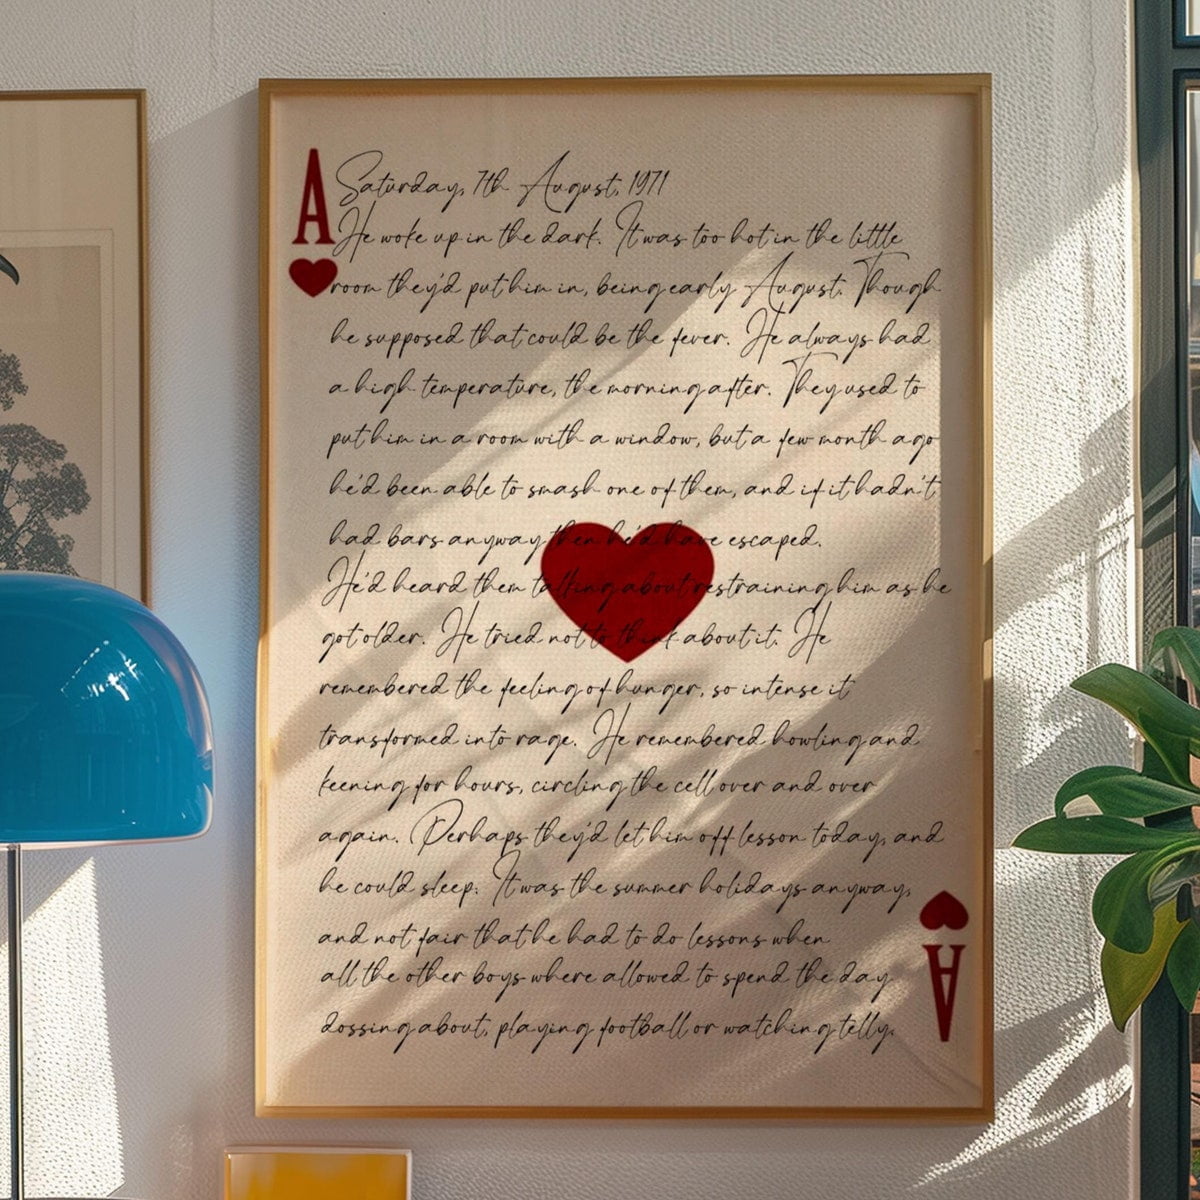 A
Saturday, 7th August, 1971
He woke up in the dark. It was too hot in the little
room they'd put him in, being early August. Though
he supposed that could be the fever. He always had
a high temperature, the morning after. They used to
put him in a room with a window, but a few month ago
he'd been able to smash one of them, and if it hadn't
had bars anyway then he'd have escaped.
He'd heard them talking about restraining him as he
got older. He tried not to think about it. He
remembered the feeling of hunger, so intense it
transformed into rage. He remembered howling and
keening for hours, circling the cell over and over
again. Perhaps they'd let him off lesson today, and
he could sleep. It was the summer holidays anyway,
and not fair that he had to do lessons when
all the other boys where allowed to spend the day
dossing about, playing football or watching telly.
A